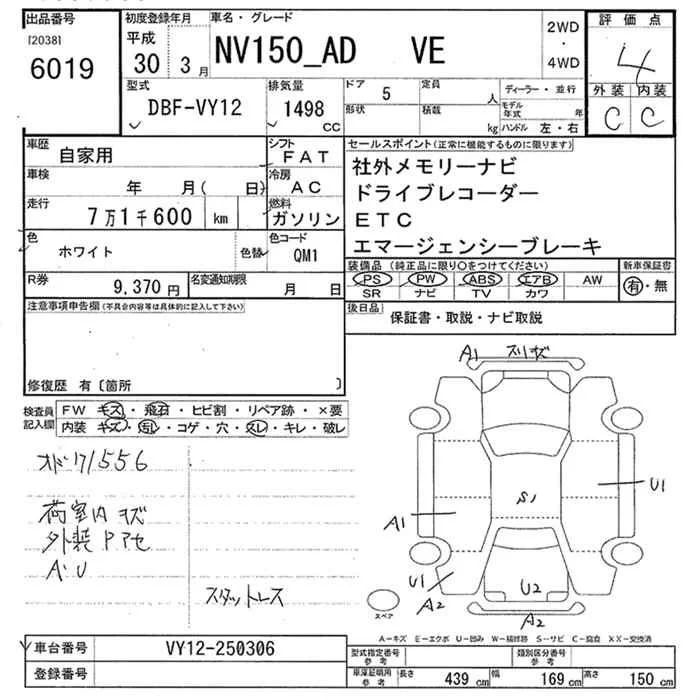 出品番号
[2038]
6019
初度登録年月
平成
30 3月
車名・グレード
NV150_AD VE
2WD
・
4WD
評価点
4
外装 内装
C C
型式
DBF-VY12
排気量
1498
CC
ドア
5
定員
人
形状
積載
kg
ディーラー・並行
モデル年式 年
ハンドル 左・右
車歴
自家用
シフト
FAT
車検
年 月( 日)
冷房
AC
走行
7万1千600 km
燃料
ガソリン
色
ホワイト
色替
色コード
QM1
R券
9,370円
名変通知期限
月 日
セールスポイント(正常に機能するものに限ります)
社外メモリーナビ
ドライブレコーダー
ETC
エマージェンシーブレーキ
装備品 (純正品に限り○をつけてください)
新車保証書
PS PW ABS エアB AW
SR ナビ TV カワ
有・無
後日品
保証書・取説・ナビ取説
注意事項申告欄(不具合内容等は具体的に記入して下さい)
修復歴 有〔箇所 〕
検査員
記入欄
FW キズ・飛石・ヒビ割・リペア跡・×要
内装 キズ・汚レ・コゲ・穴・スレ・キレ・破レ
オド71556
荷室内キズ
外装Pアセ
A・U
スタットレス
A1 スリキズ
A1
S1
U1
U1
A2
U2
A2
スペア
A-キズ E-エクボ U-凹み W-補修跡 S-サビ C-腐食 XX-交換済
車台番号
VY12-250306
登録番号
型式指定番号
参考
類別区分番号
参考
車庫証明用
参考
長さ 439 cm
幅 169 cm
高さ 150 cm